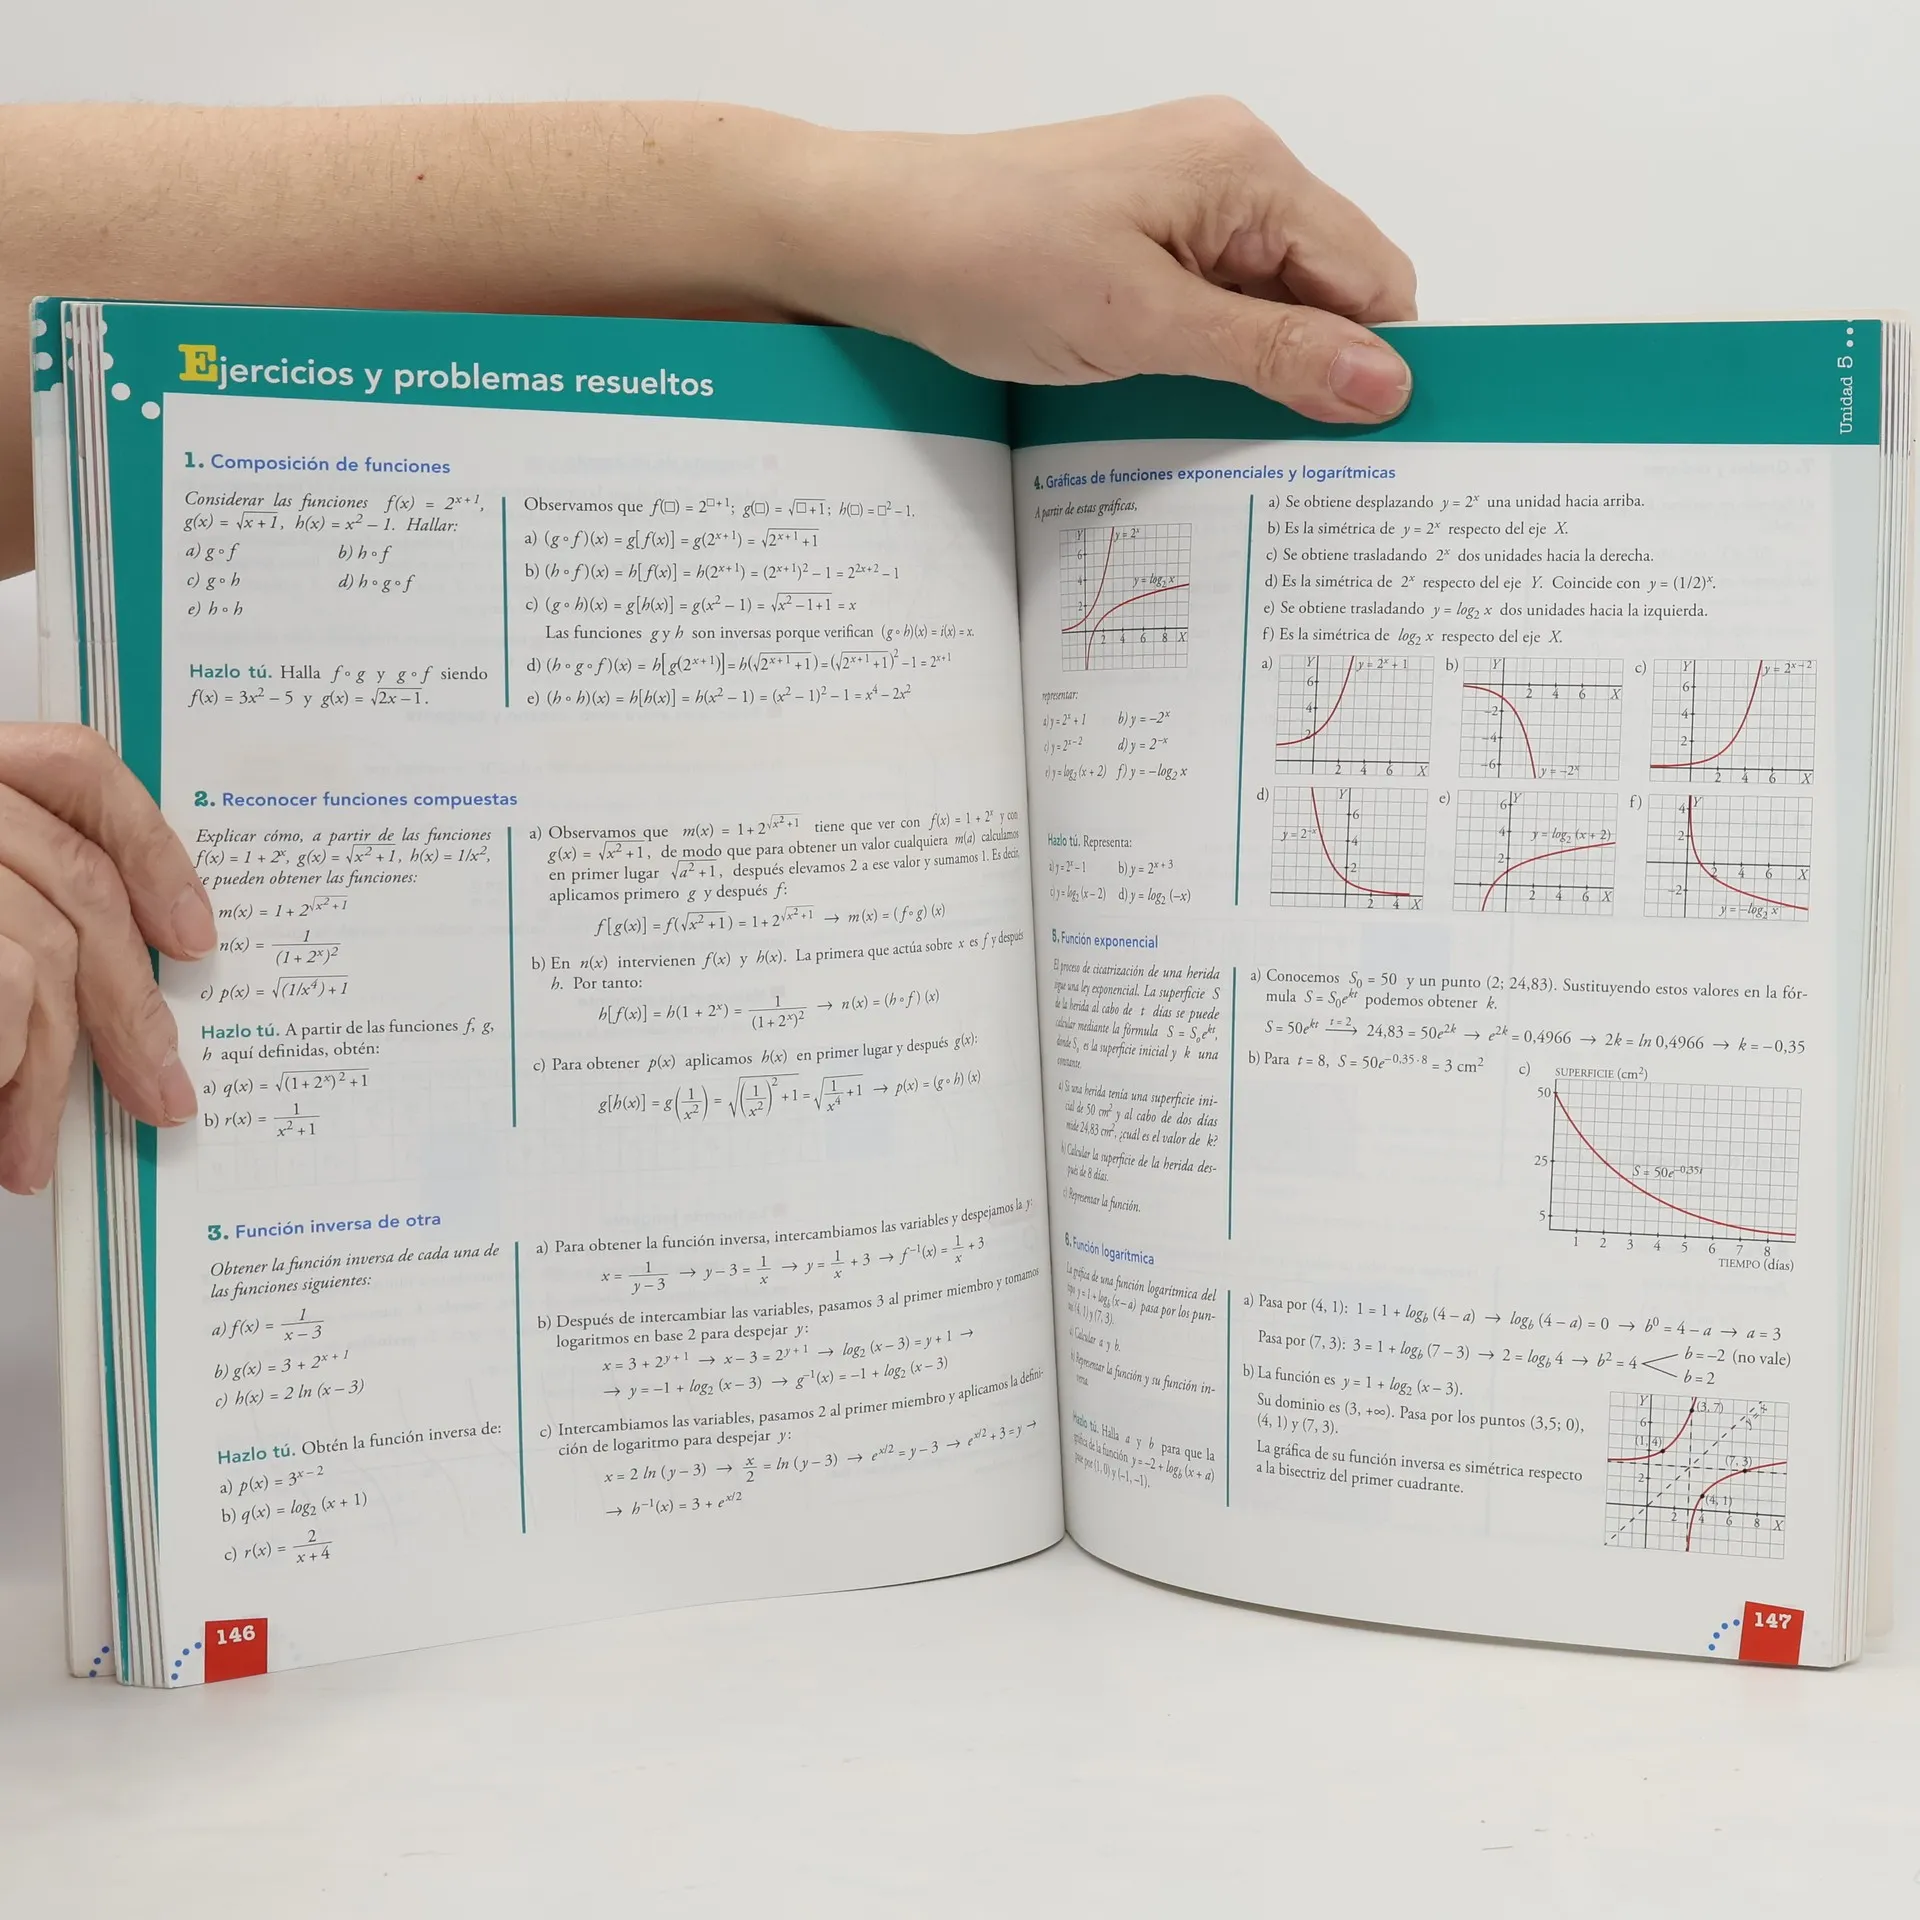 Ejercicios y problemas resueltos
1. Composición de funciones
Considerar las funciones f(x) = 2^{x+1},
g(x) = √(x+1), h(x) = x² – 1. Hallar:
a) g∘f b) h∘f
c) g∘h d) h∘g∘f
e) h∘h
Hazlo tú. Halla f∘g y g∘f siendo
f(x) = 3x² – 5 y g(x) = √(2x–1).
Observamos que f(□) = 2^{□+1}; g(□) = √(□+1); h(□) = □² – 1.
a) (g∘f)(x) = g[f(x)] = g(2^{x+1}) = √(2^{x+1}+1)
b) (h∘f)(x) = h[f(x)] = h(2^{x+1}) = (2^{x+1})² – 1 = 2^{2x+2} – 1
c) (g∘h)(x) = g[h(x)] = g(x² – 1) = √(x²–1+1) = x
Las funciones g y h son inversas porque verifican (g∘h)(x) = i(x) = x.
d) (h∘g∘f)(x) = h[g(2^{x+1})] = h(√(2^{x+1}+1)) = (√(2^{x+1}+1))² – 1 = 2^{x+1}
e) (h∘h)(x) = h[h(x)] = h(x² – 1) = (x² – 1)² – 1 = x⁴ – 2x²
2. Reconocer funciones compuestas
Explicar cómo, a partir de las funciones
f(x) = 1 + 2^x, g(x) = √(x²+1), h(x) = 1/x²,
se pueden obtener las funciones:
m(x) = 1 + 2^{√(x²+1)}
n(x) = 1/(1+2^x)²
c) p(x) = √((1/x⁴)+1)
Hazlo tú. A partir de las funciones f, g,
h aquí definidas, obtén:
a) q(x) = √((1+2^x)²+1)
b) r(x) = 1/(x²+1)
a) Observamos que m(x) = 1+2^{√(x²+1)} tiene que ver con f(x) = 1 + 2^x y con
g(x) = √(x²+1), de modo que para obtener un valor cualquiera m(a) calculamos
en primer lugar √(a²+1), después elevamos 2 a ese valor y sumamos 1. Es decir,
aplicamos primero g y después f:
f[g(x)] = f(√(x²+1)) = 1+2^{√(x²+1)} → m(x) = (f∘g)(x)
b) En n(x) intervienen f(x) y h(x). La primera que actúa sobre x es f y después
h. Por tanto:
h[f(x)] = h(1 + 2^x) = 1/(1+2^x)² → n(x) = (h∘f)(x)
c) Para obtener p(x) aplicamos h(x) en primer lugar y después g(x):
g[h(x)] = g(1/x²) = √((1/x²)²+1) = √(1/x⁴+1) → p(x) = (g∘h)(x)
3. Función inversa de otra
Obtener la función inversa de cada una de
las funciones siguientes:
a) f(x) = 1/(x–3)
b) g(x) = 3 + 2^{x+1}
c) h(x) = 2 ln (x – 3)
Hazlo tú. Obtén la función inversa de:
a) p(x) = 3^{x–2}
b) q(x) = log₂ (x + 1)
c) r(x) = 2/(x+4)
a) Para obtener la función inversa, intercambiamos las variables y despejamos la y:
x = 1/(y–3) → y – 3 = 1/x → y = 1/x + 3 → f⁻¹(x) = 1/x + 3
b) Después de intercambiar las variables, pasamos 3 al primer miembro y tomamos
logaritmos en base 2 para despejar y:
x = 3 + 2^{y+1} → x – 3 = 2^{y+1} → log₂ (x – 3) = y + 1 →
→ y = –1 + log₂ (x – 3) → g⁻¹(x) = –1 + log₂ (x – 3)
c) Intercambiamos las variables, pasamos 2 al primer miembro y aplicamos la defini-
ción de logaritmo para despejar y:
x = 2 ln (y – 3) → x/2 = ln (y – 3) → e^{x/2} = y – 3 → e^{x/2} + 3 = y →
→ h⁻¹(x) = 3 + e^{x/2}
146
Unidad 5
4. Gráficas de funciones exponenciales y logarítmicas
A partir de estas gráficas,
Y y = 2^x
6
4 y = log₂ x
2
2 4 6 8 X
representar:
a) y = 2^x + 1 b) y = –2^x
c) y = 2^{x–2} d) y = 2^{–x}
e) y = log₂ (x + 2) f) y = –log₂ x
Hazlo tú. Representa:
a) y = 2^x – 1 b) y = 2^{x+3}
c) y = log₂ (x – 2) d) y = log₂ (–x)
a) Se obtiene desplazando y = 2^x una unidad hacia arriba.
b) Es la simétrica de y = 2^x respecto del eje X.
c) Se obtiene trasladando 2^x dos unidades hacia la derecha.
d) Es la simétrica de 2^x respecto del eje Y. Coincide con y = (1/2)^x.
e) Se obtiene trasladando y = log₂ x dos unidades hacia la izquierda.
f) Es la simétrica de log₂ x respecto del eje X.
a) Y y = 2^x + 1
6
4
2
2 4 6 X
b) Y
2 4 6 X
–2
–4
–6 y = –2^x
c) Y y = 2^{x–2}
6
4
2
2 4 6 X
d) Y
6
y = 2^{–x} 4
2
2 4 X
e) 6 Y
4 y = log₂ (x + 2)
2
2 4 6 X
f) 4 Y
2
2 4 6 X
–2
y = –log₂ x
5. Función exponencial
El proceso de cicatrización de una herida
sigue una ley exponencial. La superficie S
de la herida al cabo de t días se puede
calcular mediante la fórmula S = S₀e^{kt},
donde S₀ es la superficie inicial y k una
constante.
a) Si una herida tenía una superficie ini-
cial de 50 cm² y al cabo de dos días
mide 24,83 cm², ¿cuál es el valor de k?
b) Calcular la superficie de la herida des-
pués de 8 días.
c) Representar la función.
a) Conocemos S₀ = 50 y un punto (2; 24,83). Sustituyendo estos valores en la fór-
mula S = S₀e^{kt} podemos obtener k.
S = 50e^{kt} t = 2 → 24,83 = 50e^{2k} → e^{2k} = 0,4966 → 2k = ln 0,4966 → k = –0,35
b) Para t = 8, S = 50e^{–0,35 · 8} = 3 cm²
c) SUPERFICIE (cm²)
50
25
S = 50e^{–0,35t}
5
1 2 3 4 5 6 7 8
TIEMPO (días)
6. Función logarítmica
La gráfica de una función logarítmica del
tipo y = 1 + log_b (x – a) pasa por los pun-
tos (4, 1) y (7, 3).
a) Calcular a y b.
b) Representar la función y su función in-
versa.
Hazlo tú. Halla a y b para que la
gráfica de la función y = –2 + log_b (x + a)
pase por (1, 0) y (–1, –1).
a) Pasa por (4, 1): 1 = 1 + log_b (4 – a) → log_b (4 – a) = 0 → b⁰ = 4 – a → a = 3
Pasa por (7, 3): 3 = 1 + log_b (7 – 3) → 2 = log_b 4 → b² = 4 b = –2 (no vale)
b = 2
b) La función es y = 1 + log₂ (x – 3).
Su dominio es (3, +∞). Pasa por los puntos (3,5; 0),
(4, 1) y (7, 3).
La gráfica de su función inversa es simétrica respecto
a la bisectriz del primer cuadrante.
Y (3, 7)
6
(1, 4)
(7, 3)
2
(4, 1)
2 4 6 8 X
147